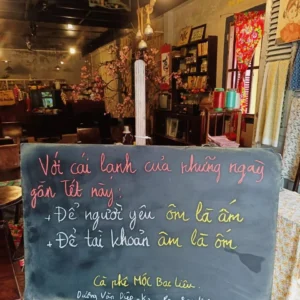 Với cái lạnh của những ngày
gần Tết này:
+ Để người yêu ôm là ấm
+ Để tài khoản âm là ốm
Cà phê MỐC Bạc Liêu.
Dương Văn Diệp